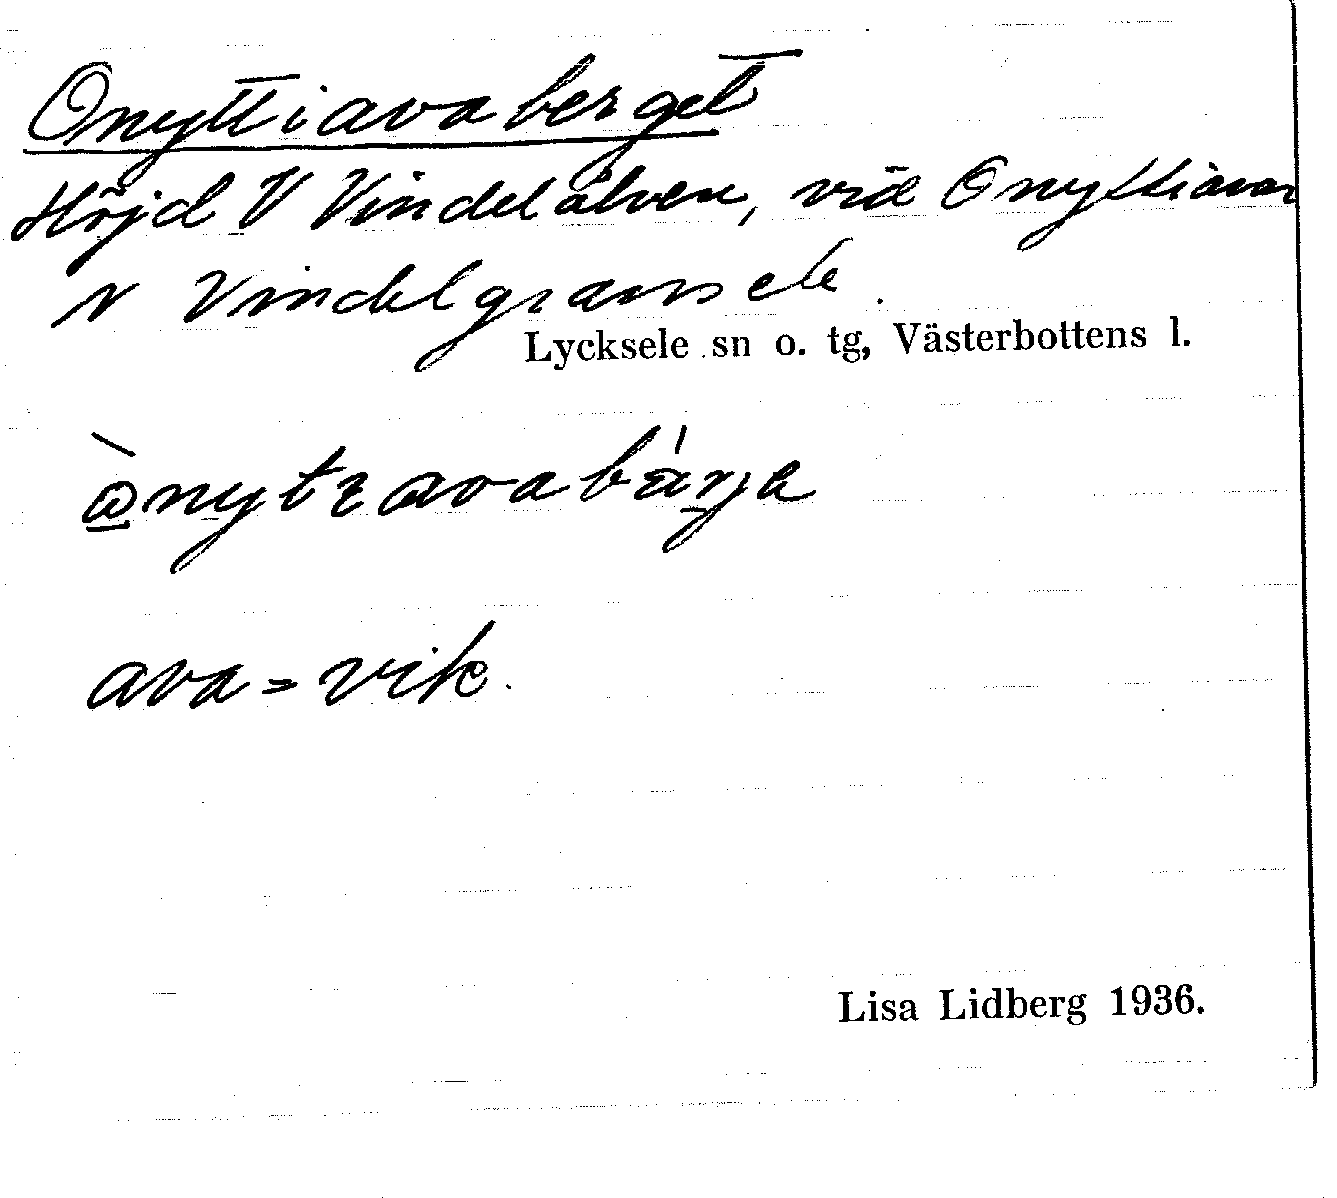 Onyttiavaberget
Höjd V Vindelälven, vid Onyttiavan
N Vindelgransele.
Lycksele sn o. tg, Västerbottens l.
ava = vik.
Lisa Lidberg 1936.